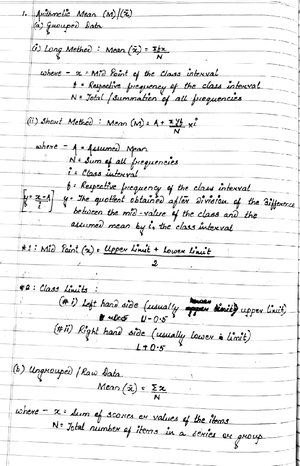 1. Arithmetic Mean (M)/(x̄)
(a) Grouped Data
(i) Long Method : Mean (x̄) = Σfx
N
where - x = Mid Point of the class interval
f = Respective frequency of the class interval
N = Total / Summation of all frequencies
(ii) Short Method : Mean (M) = A + Σfy × i
N
where - A = Assumed Mean
N = Sum of all frequencies
i = Class interval
f = Respective frequency of the class interval
[y = x-A / i] y = The quotient obtained after division of the difference
between the mid-value of the class and the
assumed mean by i, the class interval
#1 : Mid Point (x) = Upper limit + Lower limit
2
#2 : Class Limits :
(# i) Left hand side (usually upper limit)
U - 0.5
(# ii) Right hand side (usually lower limit)
L + 0.5
(b) Ungrouped / Raw Data
Mean (x̄) = Σx
N
where - x = Sum of scores or values of the items
N = Total number of items in a series or group